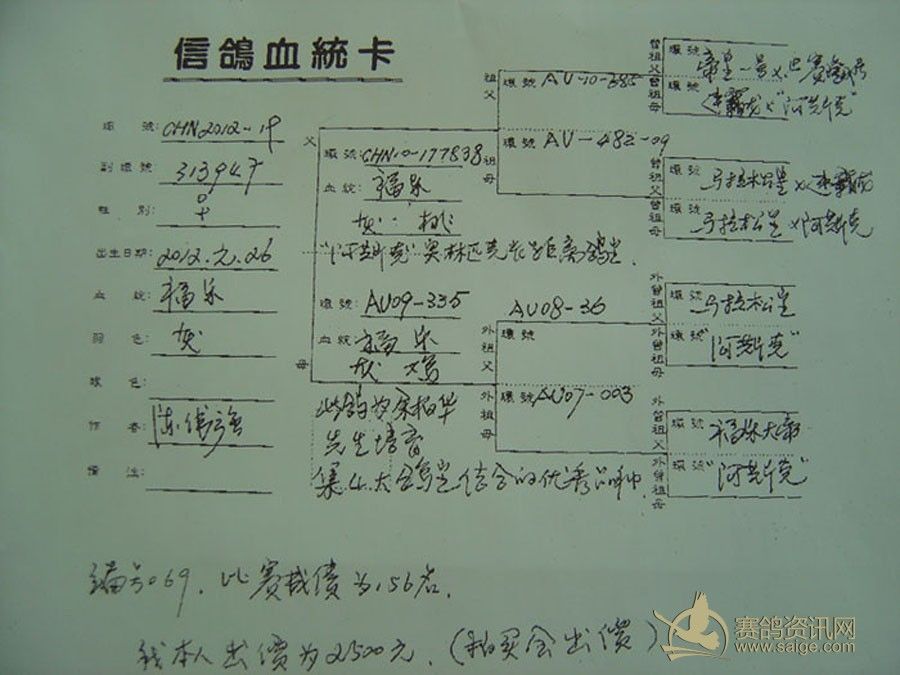 信鴿血統卡
環號: CHN2012-19
副環號: 313947
性別: ♀
出生日期: 2012.2.26
血統: 福呆
羽色: 灰
眼色:
作者:
備注:
父
環號 CHN10-177838
血統: 福呆
灰
"阿莱斯克"奥林匹克长距离鸽皇
母
環號: AU09-335
血統: 福呆
灰
此鸽为余柏华
先生培育
集4大鸽皇结合的优秀品种
祖父
環號 AU-10-385
祖母
環號 AU-482-09
外祖父
AU08-36
環號
外祖母
環號 AU07-003
曾祖父
環號
曾祖母
環號
曾祖父
環號 马拉松皇x
曾祖母
環號 马拉松皇x"阿莱斯克"
外曾祖父
環號 马拉松皇
外曾祖母
環號 "阿莱斯克"
外曾祖父
環號 福呆大帝
外曾祖母
環號 "阿莱斯克"
编号069,比赛成绩为156名.
我本人出價为2500元.(拍买会出價)
赛鸽资讯网
www.saige.com